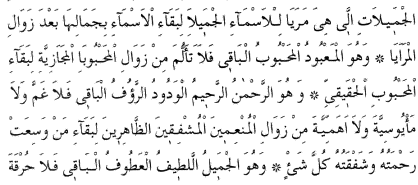 الْجَمٖيلَاتِ الَّتٖى هِىَ مَرَايَا لِلْاَسْمَٓاءِ الْجَمٖيلَةِ لِبَقَٓاءِ الْاَسْمَٓاءِ بِجَمَالِهَا بَعْدَ زَوَالِ
الْمَرَايَا ❊ وَهُوَ الْمَعْبُودُ الْمَحْبُوبُ الْبَاقٖى فَلَا تَاَلُّمَ مِنْ زَوَالِ الْمَحْبُوبَاتِ الْمَجَازِيَّةِ لِبَقَٓاءِ
الْمَحْبُوبِ الْحَقٖيقِىِّ ❊ وَ هُوَ الرَّحْمٰنُ الرَّحٖيمُ الْوَدُودُ الرَّؤُفُ الْبَاقٖى فَلَا غَمَّ وَلَا
مَأْيُوسِيَّةَ وَلَا اَهَمِّيَّةَ مِنْ زَوَالِ الْمُنْعِمٖينَ الْمُشْفِقٖينَ الظَّاهِرٖينَ لِبَقَٓاءِ مَنْ وَسِعَتْ
رَحْمَتُهُ وَشَفْقَتُهُ كُلَّ شَىْءٍ ❊ وَهُوَ الْجَمٖيلُ اللَّطٖيفُ الْعَطُوفُ الْبَاقٖى فَلَا حُرْقَةَ